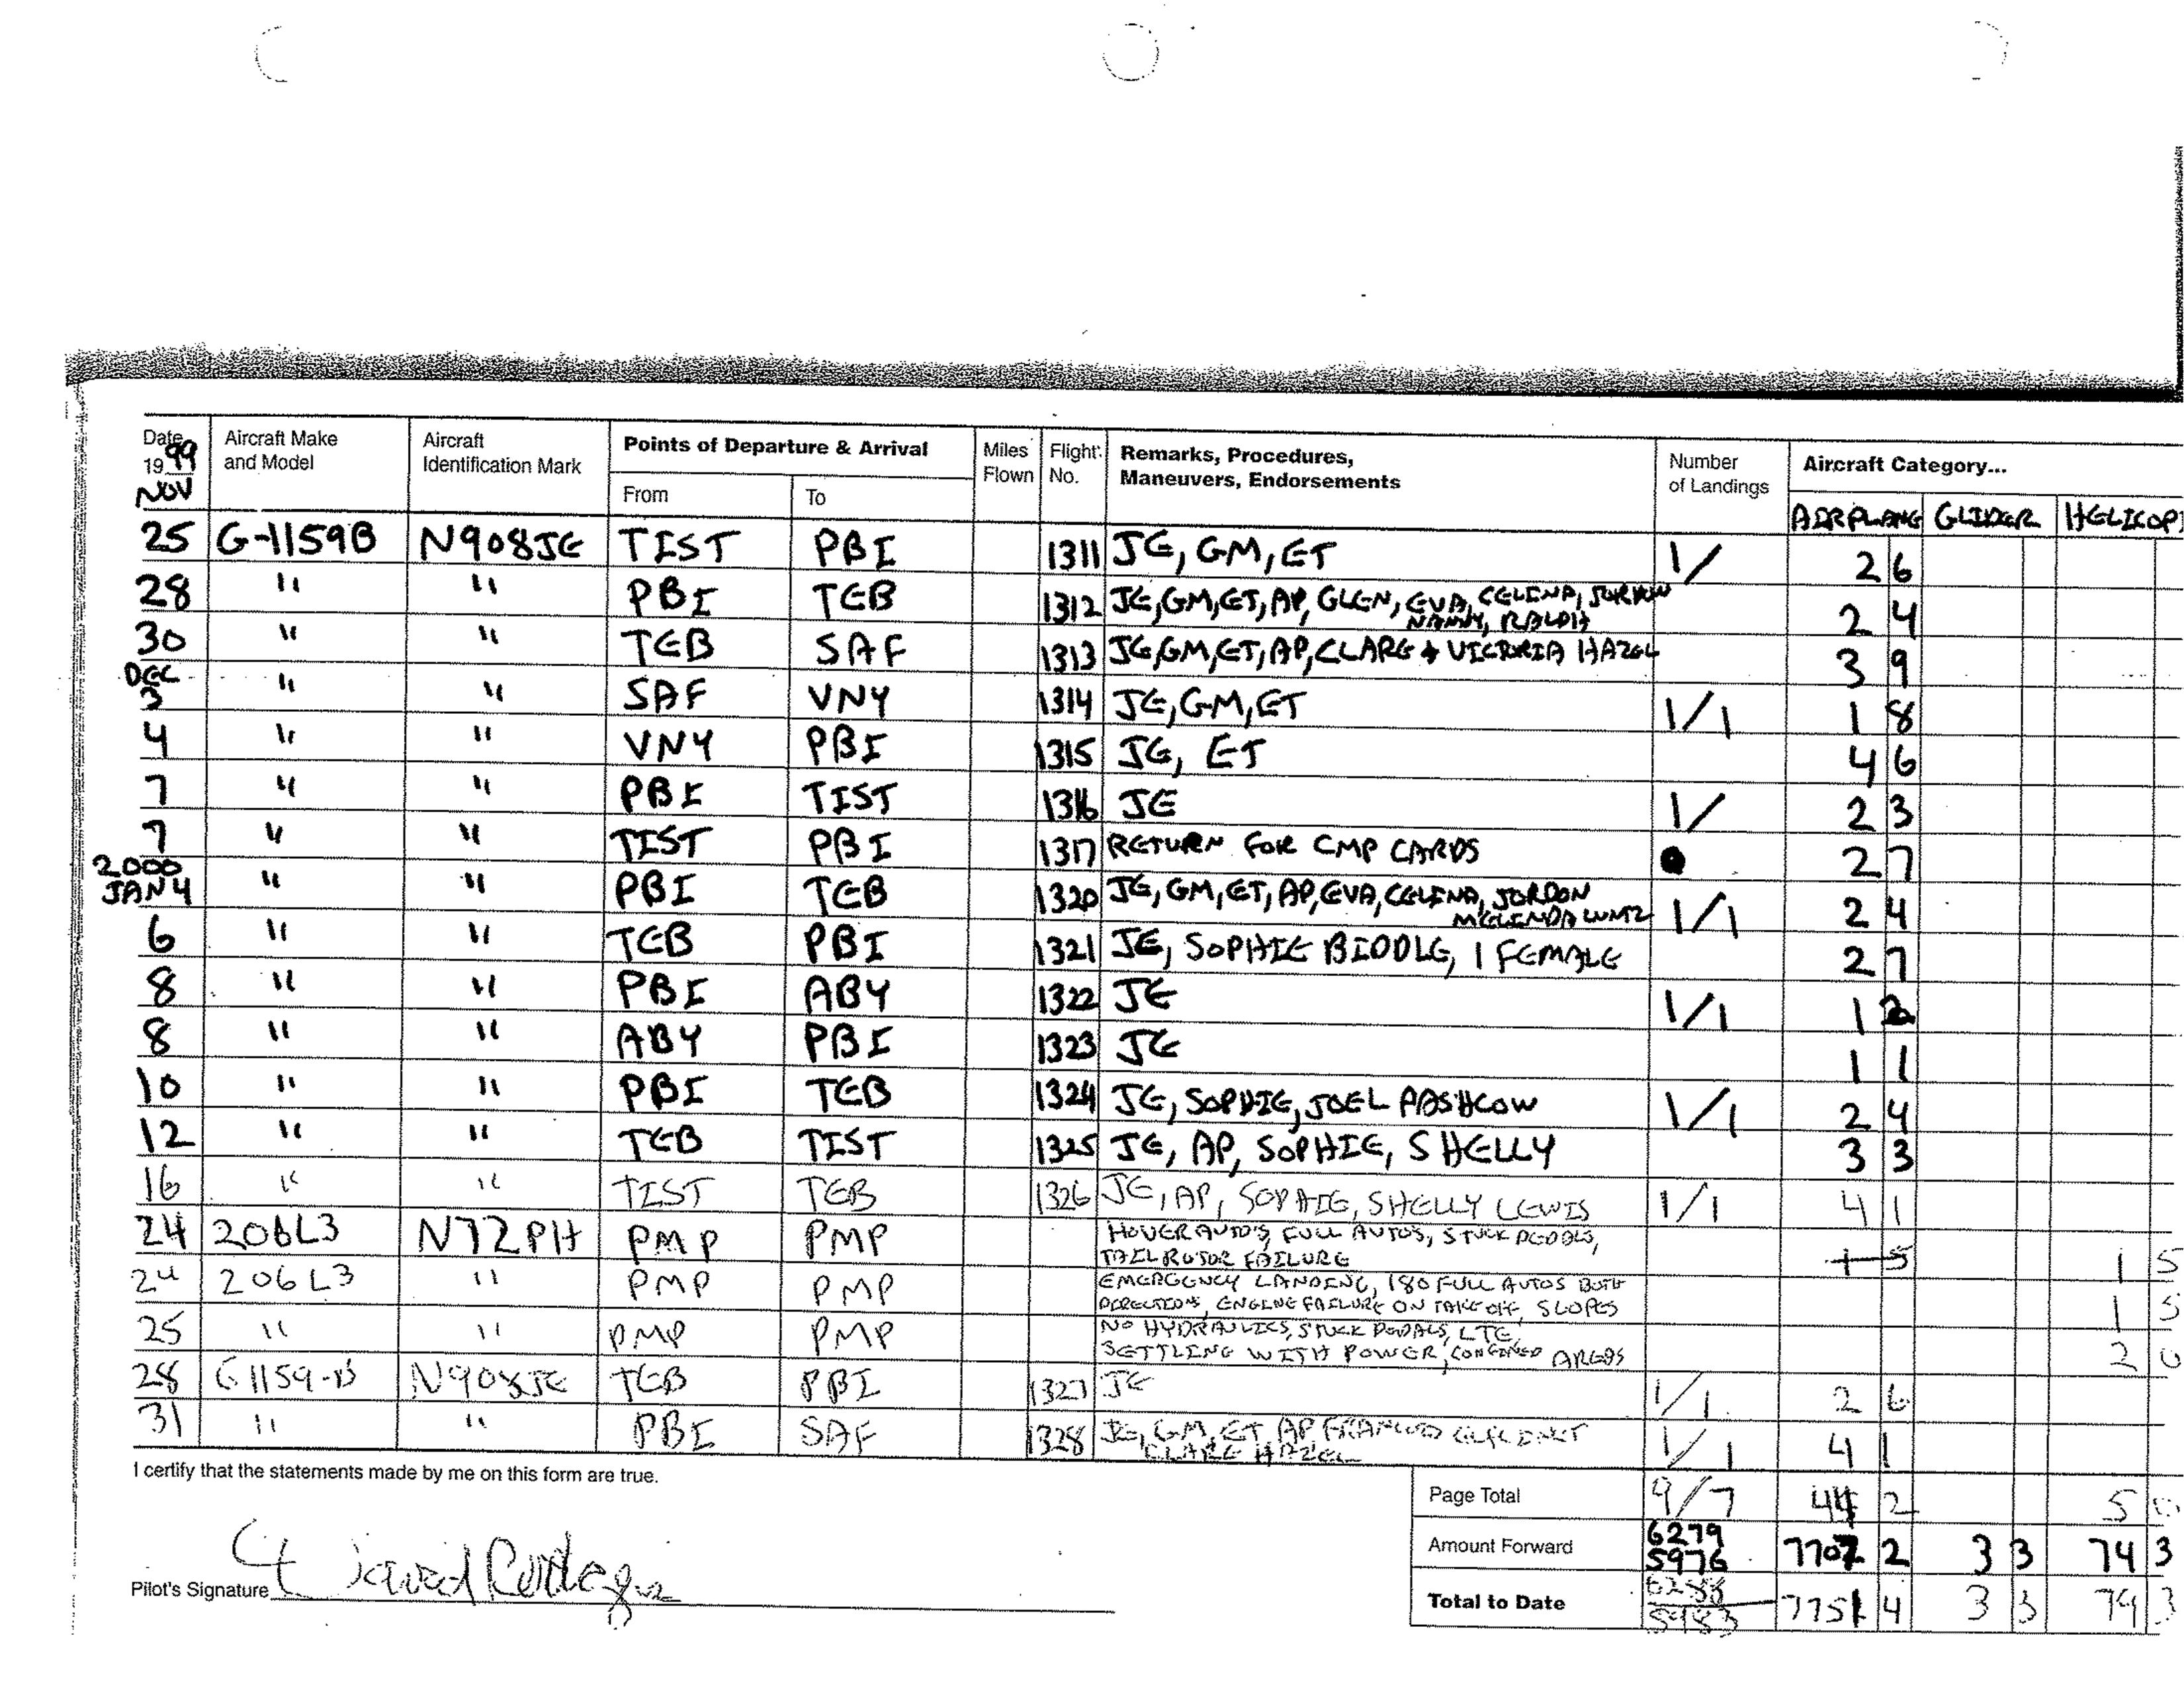 Date 1999 NOV Aircraft Make and Model Aircraft Identification Mark Points of Departure & Arrival From To Miles Flown Flight No. Remarks, Procedures, Maneuvers, Endorsements Number of Landings Aircraft Category... AIRPLANE GLIDER HELICOP
25 G-1159B N908JE TIST PBI 1311 JE, GM, ET 1/ 2 6
28 " " PBI TEB 1312 JE, GM, ET, AP, GLEN, EVA, CELINA, JORDON 2 4
NANNY, RALPH
30 " " TEB SAF 1313 JE, GM, ET, AP, CLARE + VICTORIA HAZEL 3 9
DEC
3 " " SAF VNY 1314 JE, GM, ET 1/1 1 8
4 " " VNY PBI 1315 JE, ET 4 6
7 " " PBI TIST 1316 JE 1/ 2 3
7 " " TIST PBI 1317 RETURN FOR CMP CARDS 2 7
2000
JAN 4 " " PBI TEB 1320 JE, GM, ET, AP, EVA, CELINA, JORDON 1/1 2 4
MELINDA LUNTZ
6 " " TEB PBI 1321 JE, SOPHIE BIDDLE, 1 FEMALE 2 7
8 " " PBI ABY 1322 JE 1/1 1 2
8 " " ABY PBI 1323 JE 1 1
10 " " PBI TEB 1324 JE, SOPHIE, JOEL PASHCOW 1/1 2 4
12 " " TEB TIST 1325 JE, AP, SOPHIE, SHELLY 3 3
16 " " TIST TEB 1326 JE, AP, SOPHIE, SHELLY LEWIS 1/1 4 1
24 206L3 N72PH PMP PMP HOVER AUTO'S, FULL AUTOS, STUCK PEDALS,
TAIL ROTOR FAILURE 1 5 1 5
24 206L3 " PMP PMP EMERGENCY LANDING, 180 FULL AUTOS BOTH
DIRECTIONS, ENGINE FAILURE ON TAKE OFF, SLOPES 1 5
25 " " PMP PMP NO HYDRAULICS, STUCK PEDALS, LTE,
SETTLING WITH POWER, CONFINED AREAS 2 0
28 G1159-B N908JE TEB PBI 1327 JE 1/1 2 6
31 " " PBI SAF 1328 JE, GM, ET, AP 1/1 4 1
CLARE HAZEL
I certify that the statements made by me on this form are true.
Page Total 9/7 44 2 5
Amount Forward 6279 5976 7707 2 3 3 74 3
Pilot's Signature
Total to Date 6288 5983 7751 4 3 3 79 3